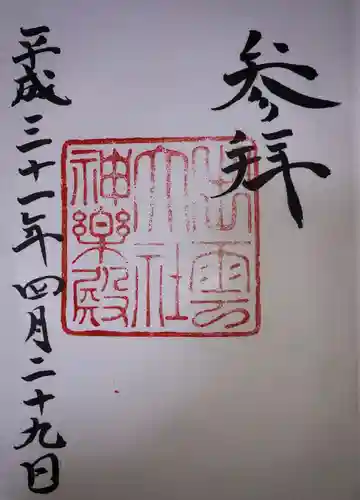 参拝
出雲
大社
神樂殿
平成三十一年四月二十九日